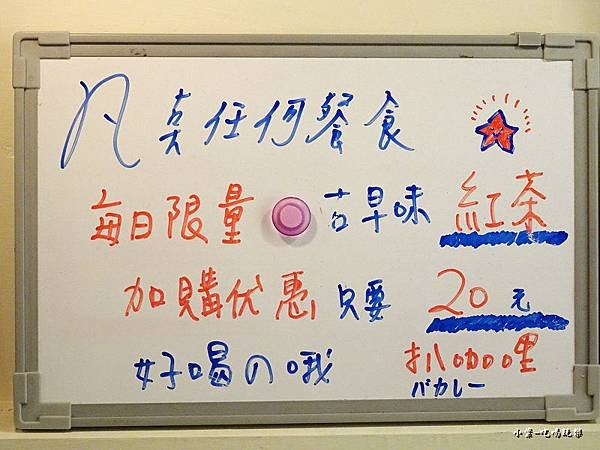 凡點任何餐食
每日限量 古早味 紅茶
加購优惠 只要 20元
好喝の哦 扒咖哩
バカレー
小紫-吃喝玩樂